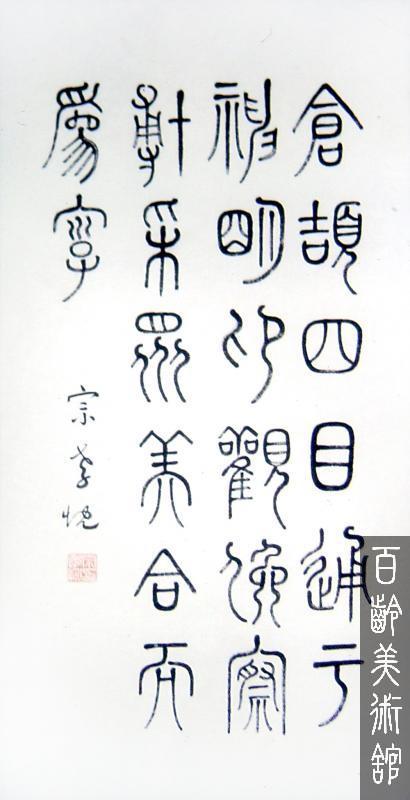 倉頡四目通于
神明卬觀俛察
博采眾美合而
爲字
宗孝忱
百齡美術館